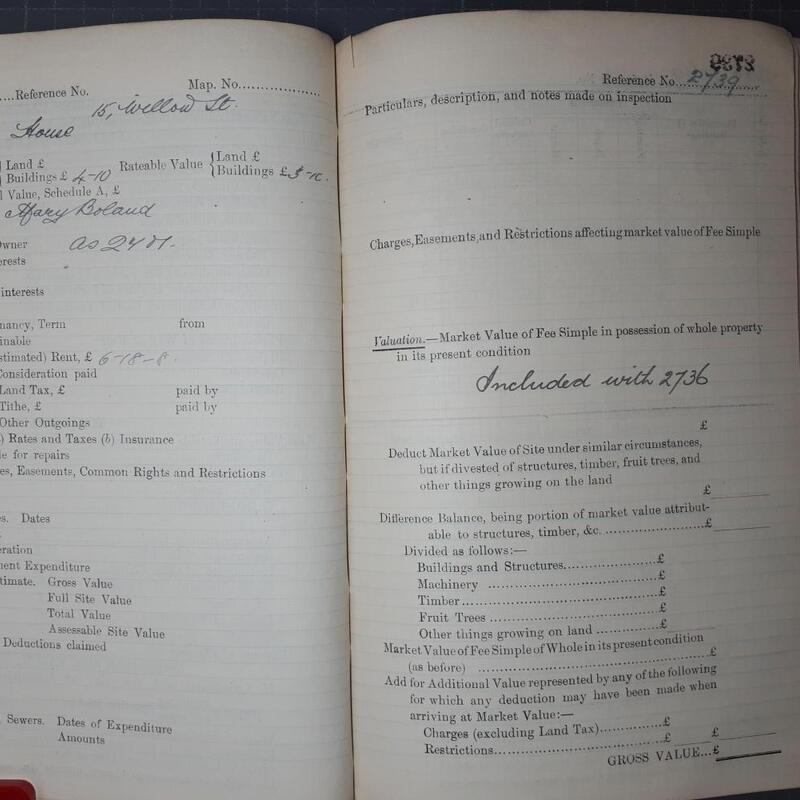 ....Reference No.
Map. No....................
15, Willow St.
House
Land £
Buildings £ 4-10 Rateable Value
Land £
Buildings £ 3-10.
l Value, Schedule A, £
Mary Boland
Owner as 2401.
erests
interests
nancy, Term from
inable
stimated) Rent, £ 6-18-8.
Consideration paid
Land Tax, £ paid by
Tithe, £ paid by
Other Outgoings
) Rates and Taxes (b) Insurance
le for repairs
es, Easements, Common Rights and Restrictions
es. Dates
eration
ment Expenditure
timate. Gross Value
Full Site Value
Total Value
Assessable Site Value
Deductions claimed
Sewers. Dates of Expenditure
Amounts
Reference No....2739
Particulars, description, and notes made on inspection
Charges, Easements, and Restrictions affecting market value of Fee Simple
Valuation.—Market Value of Fee Simple in possession of whole property
in its present condition
Included with 2736
£
Deduct Market Value of Site under similar circumstances,
but if divested of structures, timber, fruit trees, and
other things growing on the land
£
Difference Balance, being portion of market value attribut-
able to structures, timber, &c. ....................£
Divided as follows:—
Buildings and Structures..................£
Machinery ..............................£
Timber....................................£
Fruit Trees ..............................£
Other things growing on land ............£
Market Value of Fee Simple of Whole in its present condition
(as before) ........................................£
Add for Additional Value represented by any of the following
for which any deduction may have been made when
arriving at Market Value:—
Charges (excluding Land Tax)............£
Restrictions..............................£ £
GROSS VALUE...£